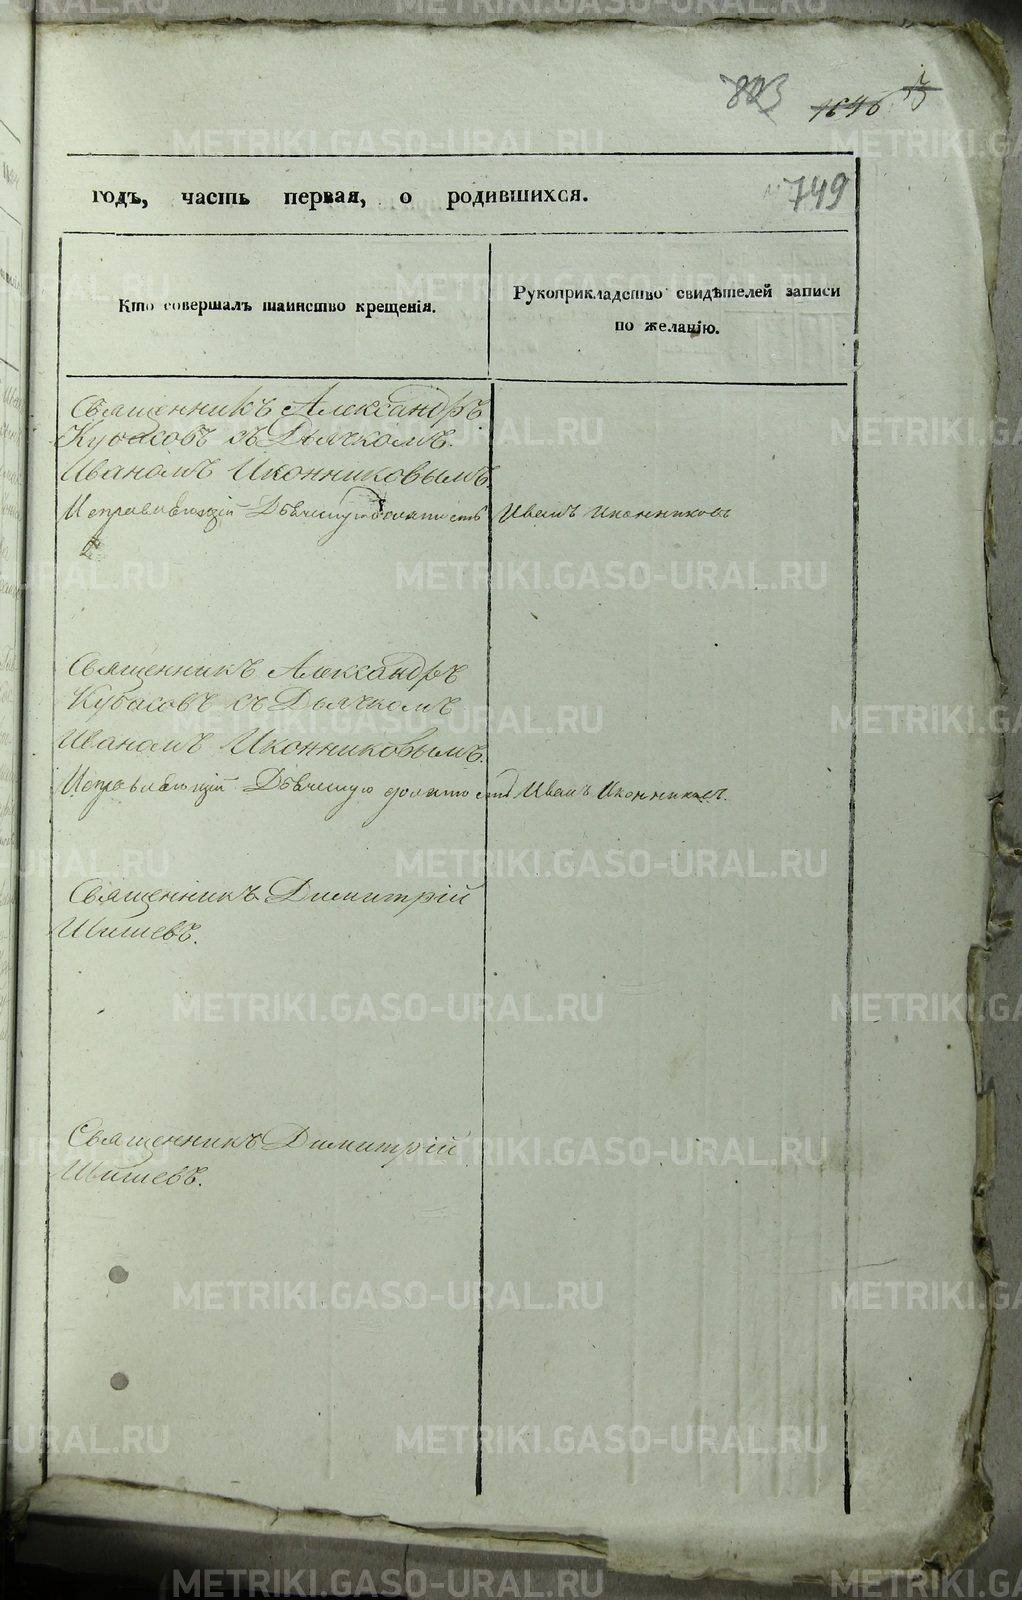 803 1646 13
749
годъ, часть первая, о родившихся.
Кто совершалъ таинство крещенія.
Рукоприкладство свидѣтелей записи
по желанію.
Священникъ Александръ
Кубасовъ съ Дьячкомъ
Иваномъ Иконниковымъ
Исправляющій Дьяческую должность Иванъ Иконниковъ
Священникъ Александръ
Кубасовъ съ Дьячкомъ
Иваномъ Иконниковымъ.
Исправляющій Дьяческую должность Иванъ Иконниковъ.
Священникъ Димитрій
Шишевъ.
Священникъ Димитрій
Шишевъ.
METRIKI.GASO-URAL.RU